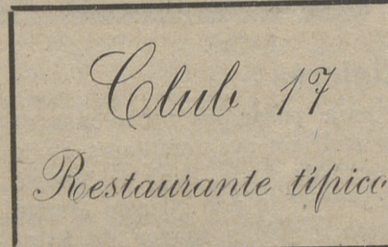 Club 17
Restaurante típico